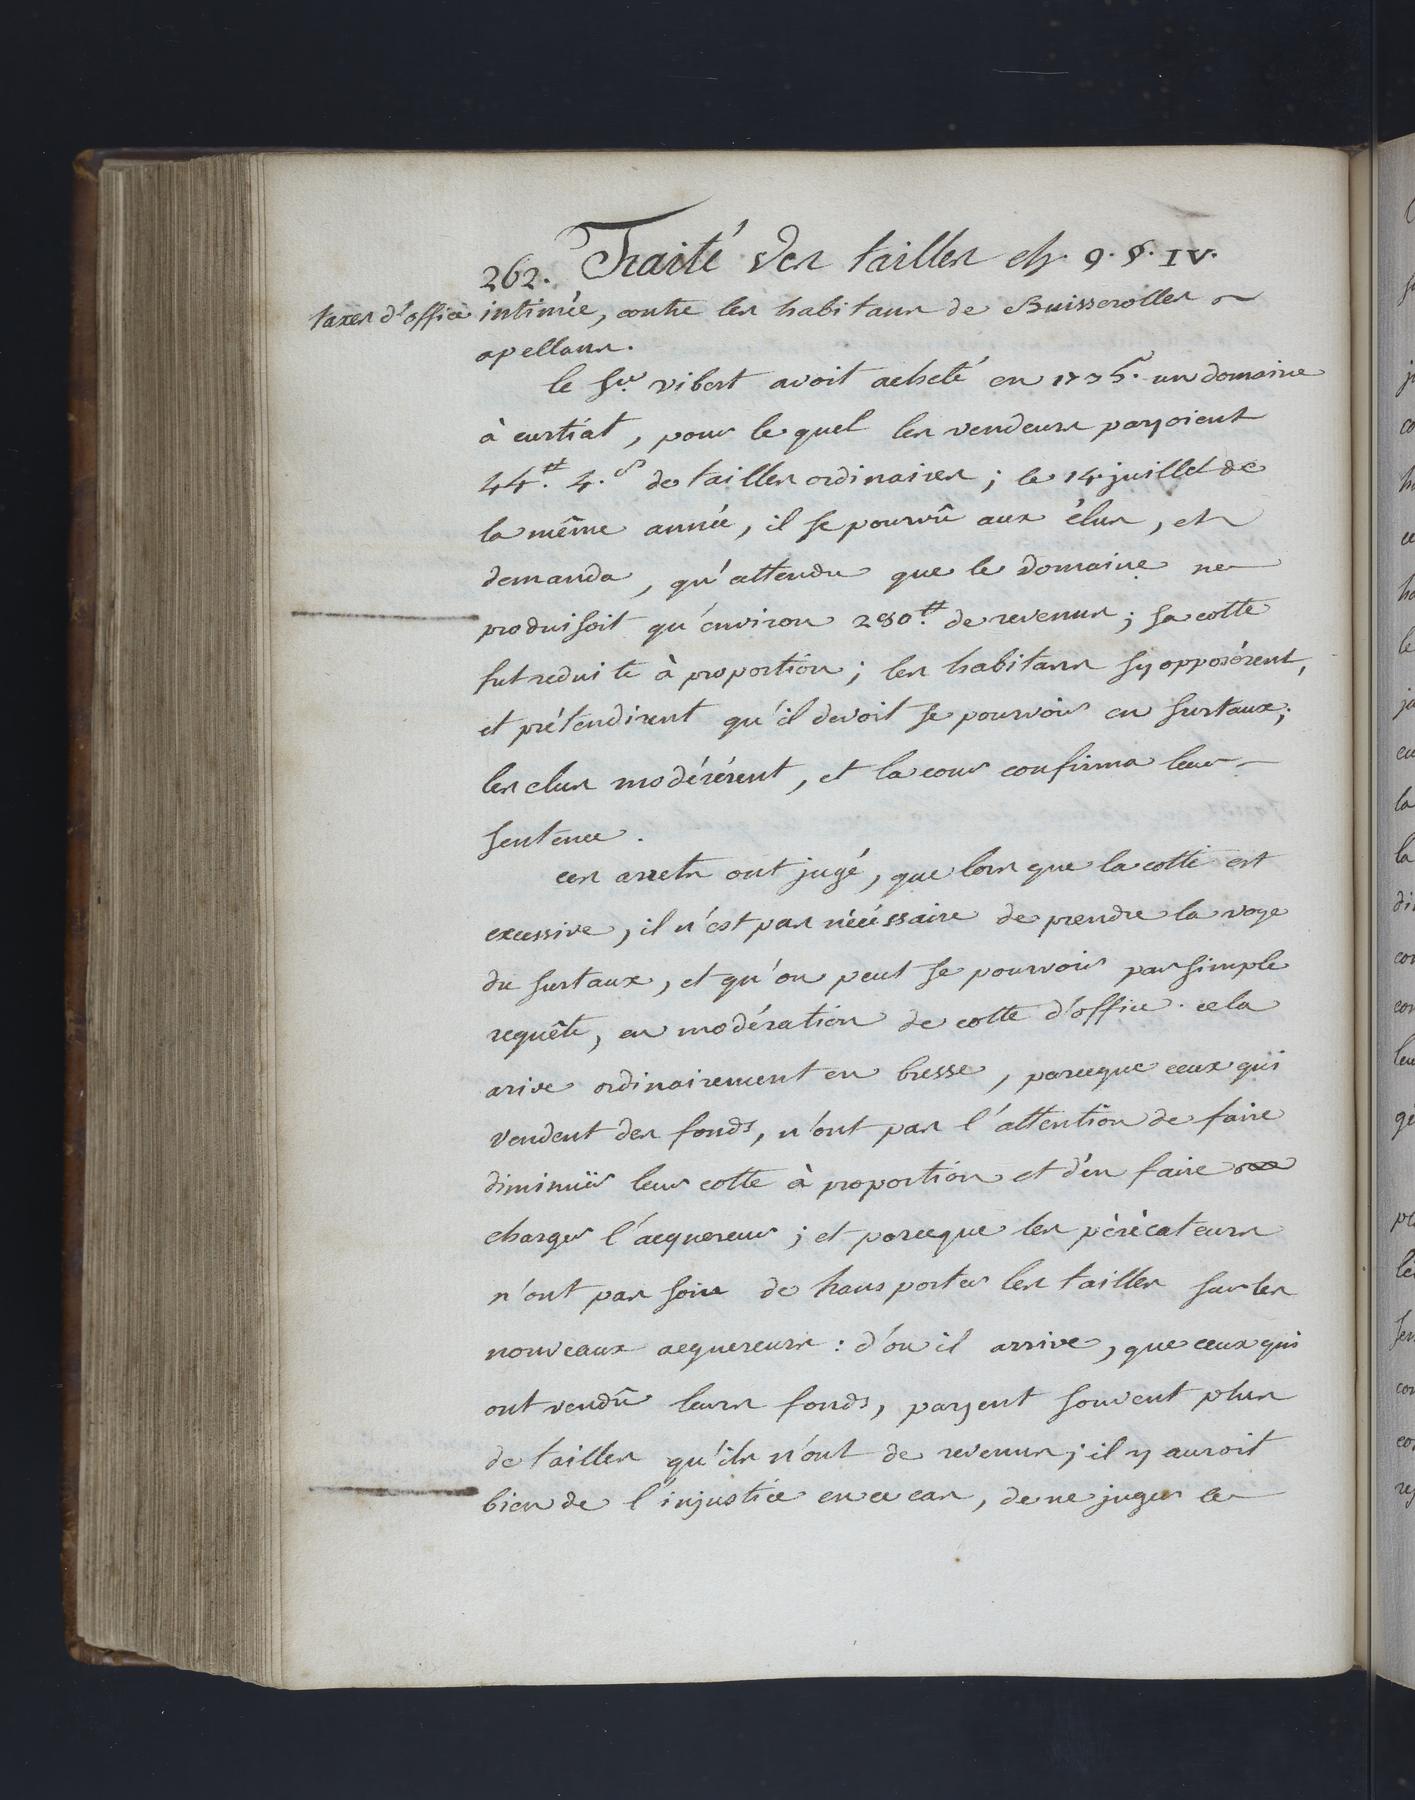 262. Traité des tailles ch. 9. §. IV.
taxes d'office
intimée, contre les habitans de Buisserolles
apellans.
le Sr. vibert avoit acheté en 1735. un domaine
à curtiat, pour lequel les vendeurs payoient
44.# 4.s de tailles ordinaires; le 14 juillet de
la même année, il se pourvû aux élus, et
demanda, qu'attendu que le domaine ne
produisoit qu'environ 280.# de revenus; sa cotte
fut reduite à proportion; les habitans sy opposérent,
et prétendirent qu'il devoit se pourvoir en surtaux;
les elus modérérent, et la cour confirma leur
sentence.
ces arrets ont jugé, que lors que la cotte est
excessive, il n'est pas nécéssaire de prendre la voye
du surtaux, et qu'on peut se pourvoir par simple
requête, en modération de cotte d'office. cela
arive ordinairement en bresse, parceque ceux qui
vendent des fonds, n'ont pas l'attention de faire
diminüer leur cotte à proportion et d'en faire
charger l'acquereur; et parceque les péréicateurs
n'ont pas soin de transporter les tailles sur les
nouveaux acquereurs: d'où il arrive, que ceux qui
ont vendû leurs fonds, payent souvent plus
de tailles qu'ils n'ont de revenus; il y auroit
bien de l'injustice en ce cas, de ne juger le